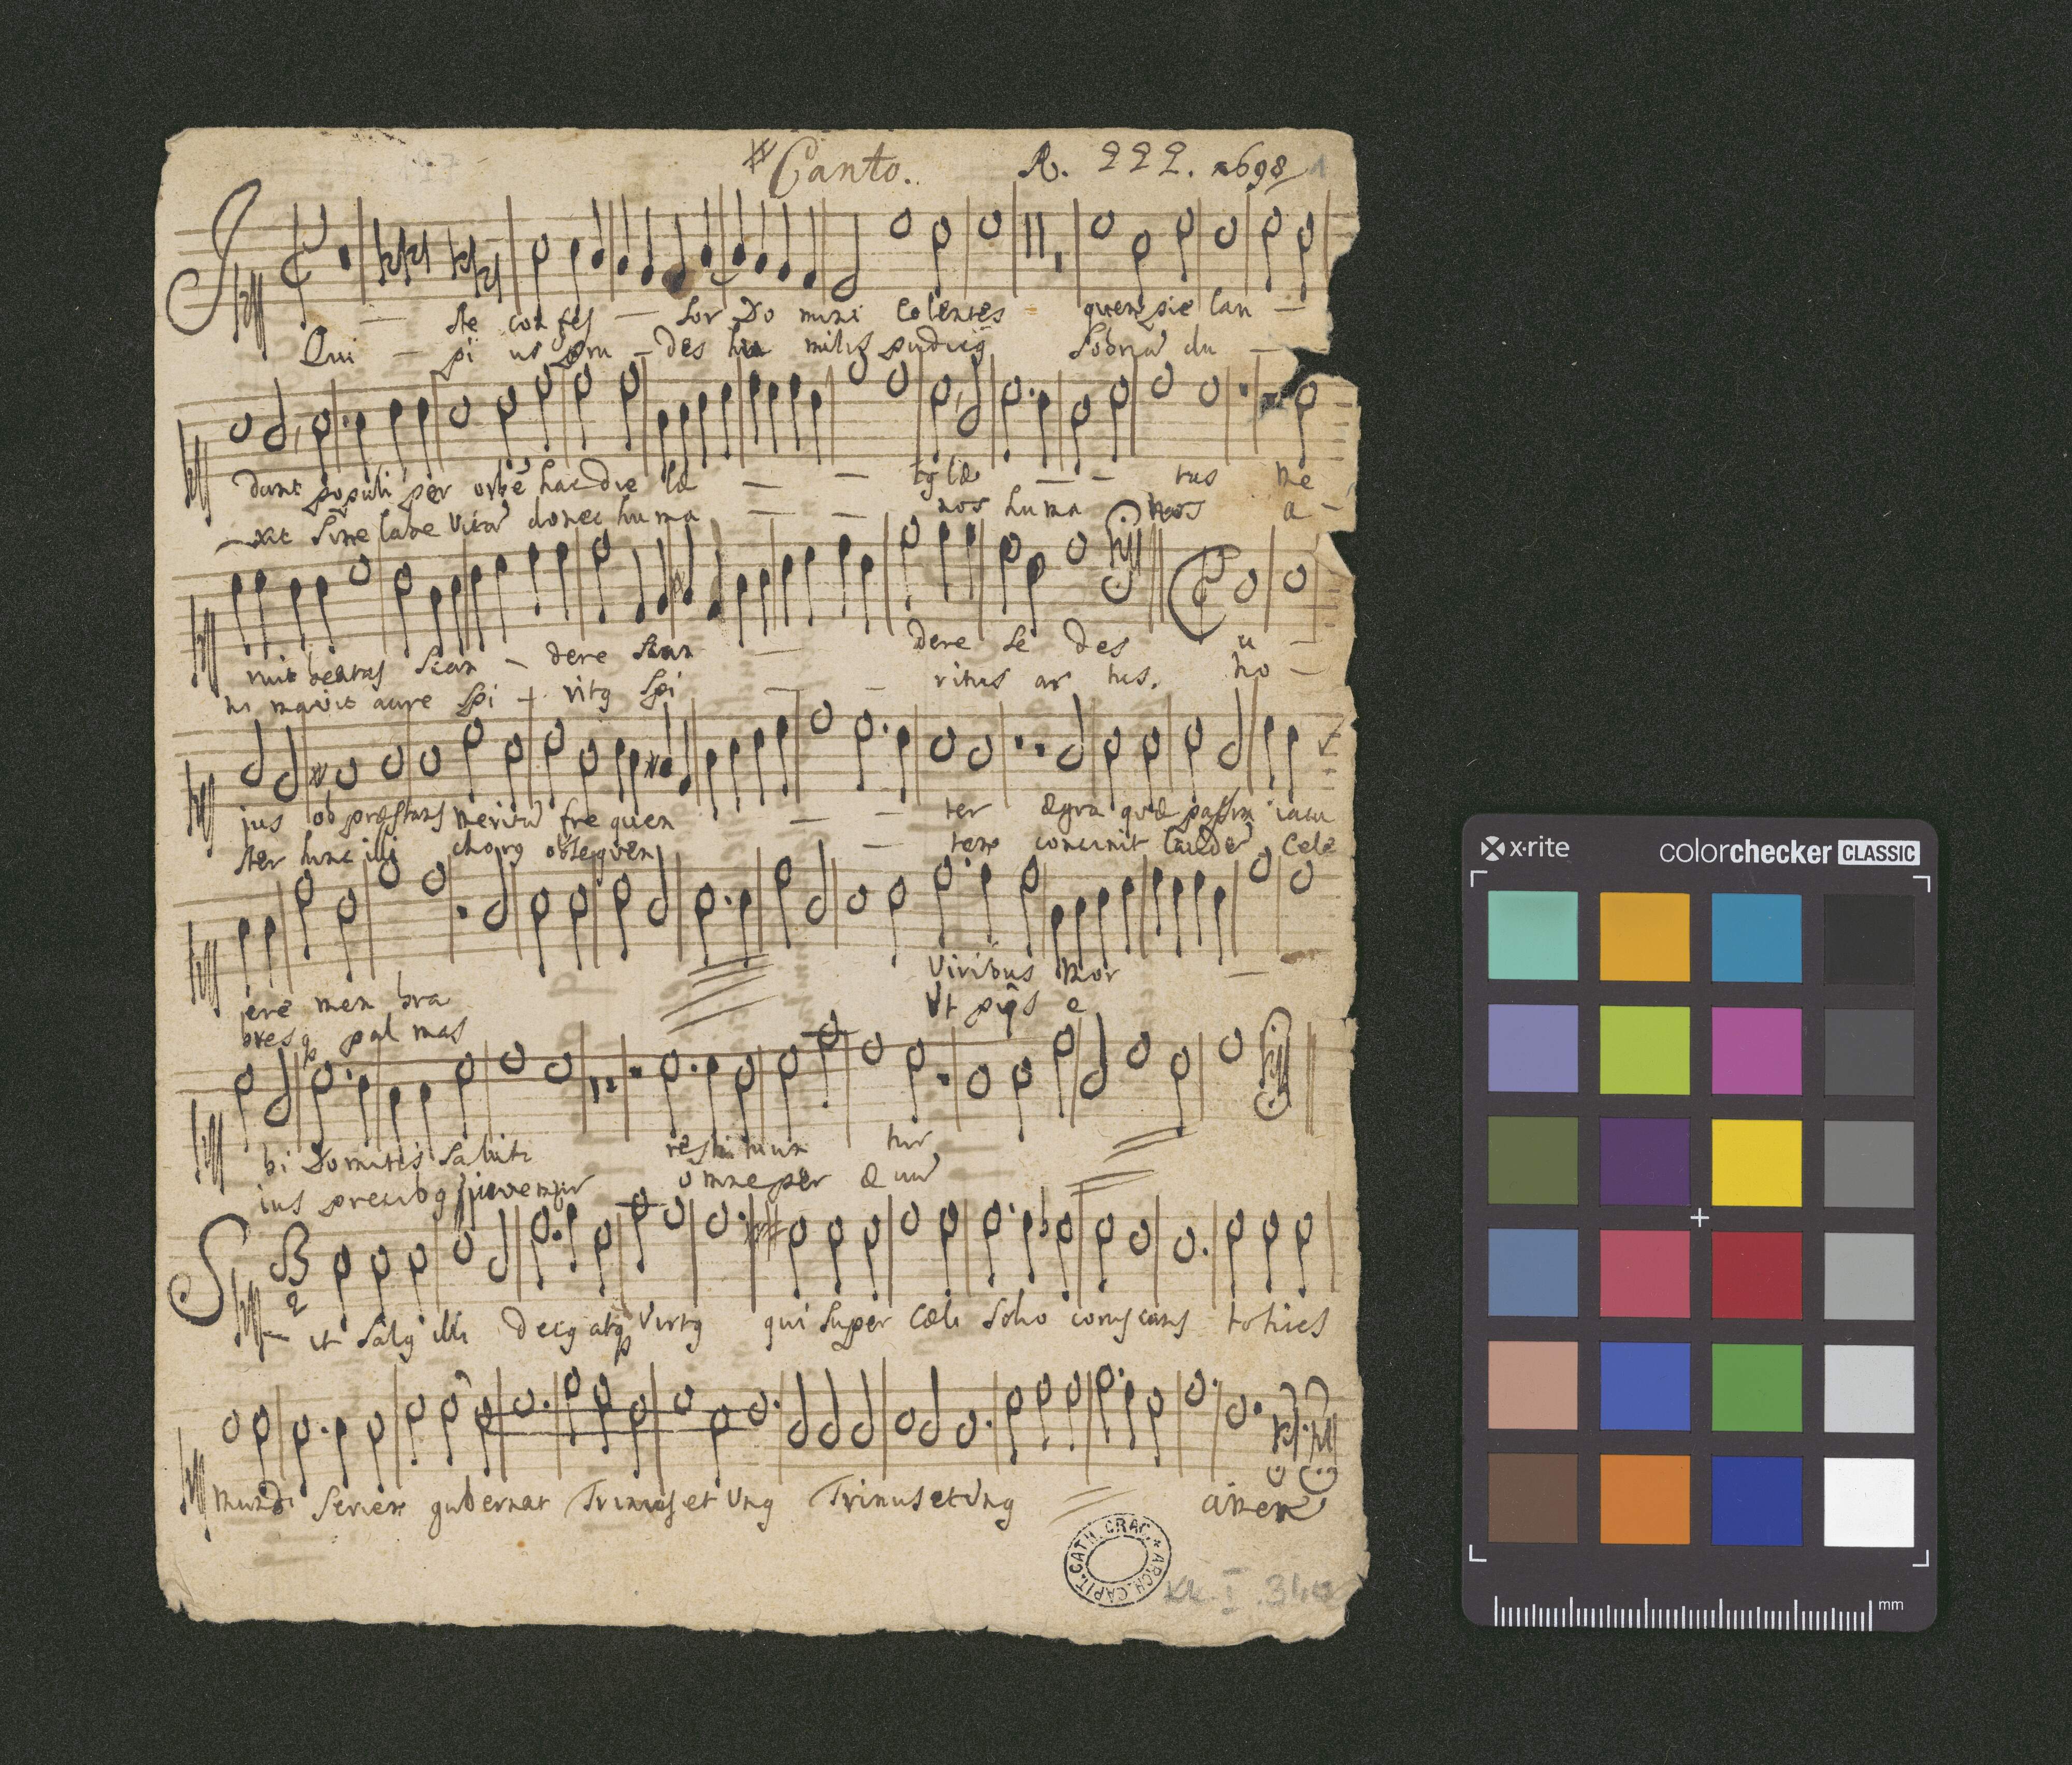 Canto. A. 222. 1698
I — ste con fes — sor Do mini Colentes quem pie lau —
Qui — pi us pru — des hu milis pudicg Sobriã du —
dant populi per orbẽ hac die læ — — tg læ — — tus me
— xit Sine labe Vitã donec huma — — nos huma nos a —
ruit beatas scan — dere scan — dere Se des u —
ni mavit auræ Spi — ritg Spi — — ritus ar tus. no —
jus ob præstans meritũ fre quen — — ter ægra quæ passim iacu
ster hunc illi chorg obsequen — tem concinit laudẽ Cele
ere mem bra Viribus Mor —
bresq pal mas Ut piis e
bi Domitis Saluti restituun tur
ius precibg juvemur omne per æ uũ
S — it Salg illi decg atq Virtg qui Super Cæli Solio coruscans toties
mundi Seriem gubernat Trinus et Ung Trinus et Ung amen
ARCH. CAPIT. CATH. CRAC.
Kk. I. 340
x·rite colorchecker CLASSIC
mm